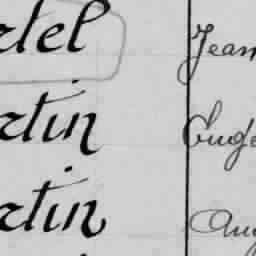 rtel Jean
rtin Eugè
rtin Aug